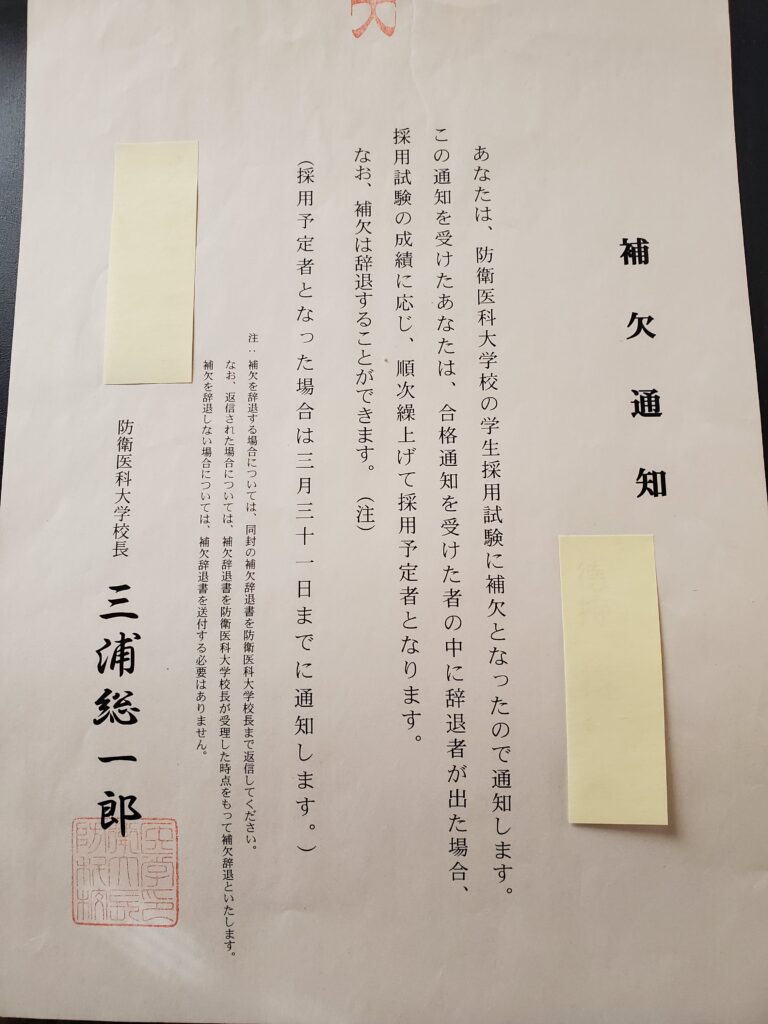 補欠通知
あなたは、防衛医科大学校の学生採用試験に補欠となったので通知します。
この通知を受けたあなたは、合格通知を受けた者の中に辞退者が出た場合、
採用試験の成績に応じ、順次繰上げて採用予定者となります。
なお、補欠は辞退することができます。（注）
（採用予定者となった場合は三月三十一日までに通知します。）
注：補欠を辞退する場合については、同封の補欠辞退書を防衛医科大学校長まで返信してください。
なお、返信された場合については、補欠辞退書を防衛医科大学校長が受理した時点をもって補欠辞退といたします。
補欠を辞退しない場合については、補欠辞退書を送付する必要はありません。
防衛医科大学校長 三浦総一郎